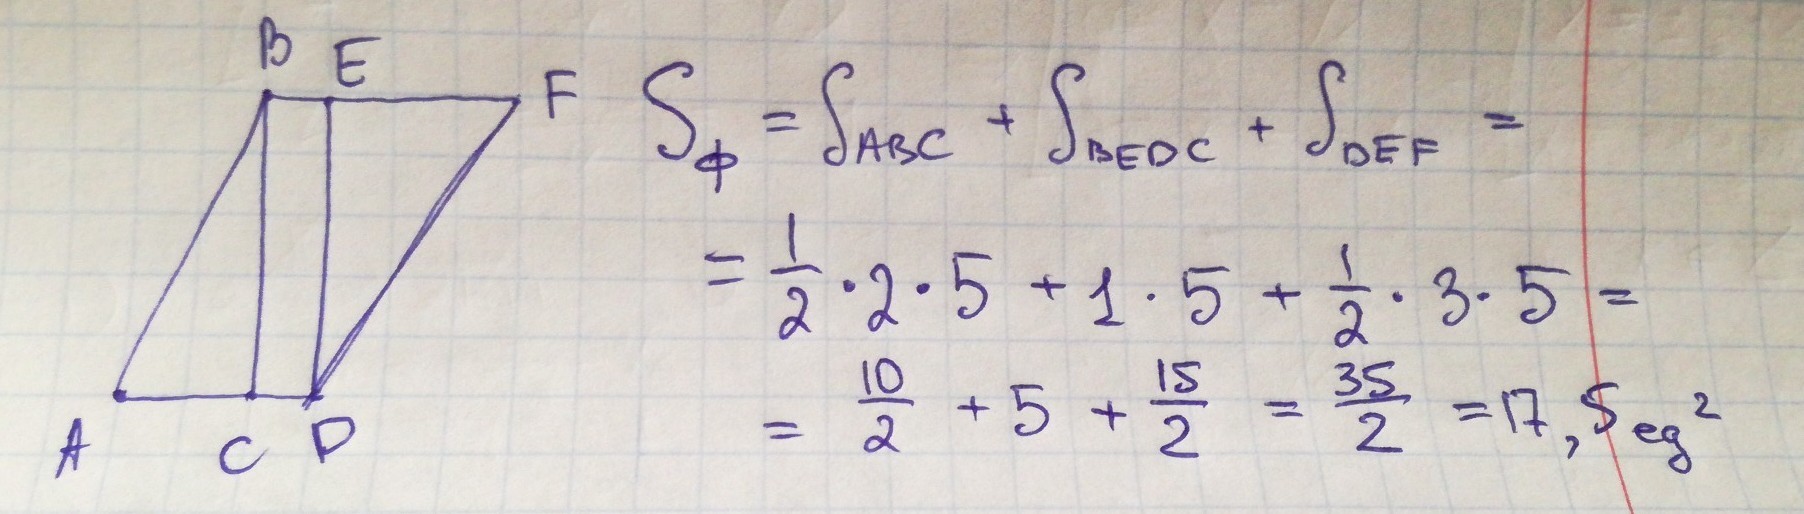 B E F
A C D
S_ф = S_ABC + S_BEDC + S_DEF =
= 1/2 · 2 · 5 + 1 · 5 + 1/2 · 3 · 5 =
= 10/2 + 5 + 15/2 = 35/2 = 17,5 eg²